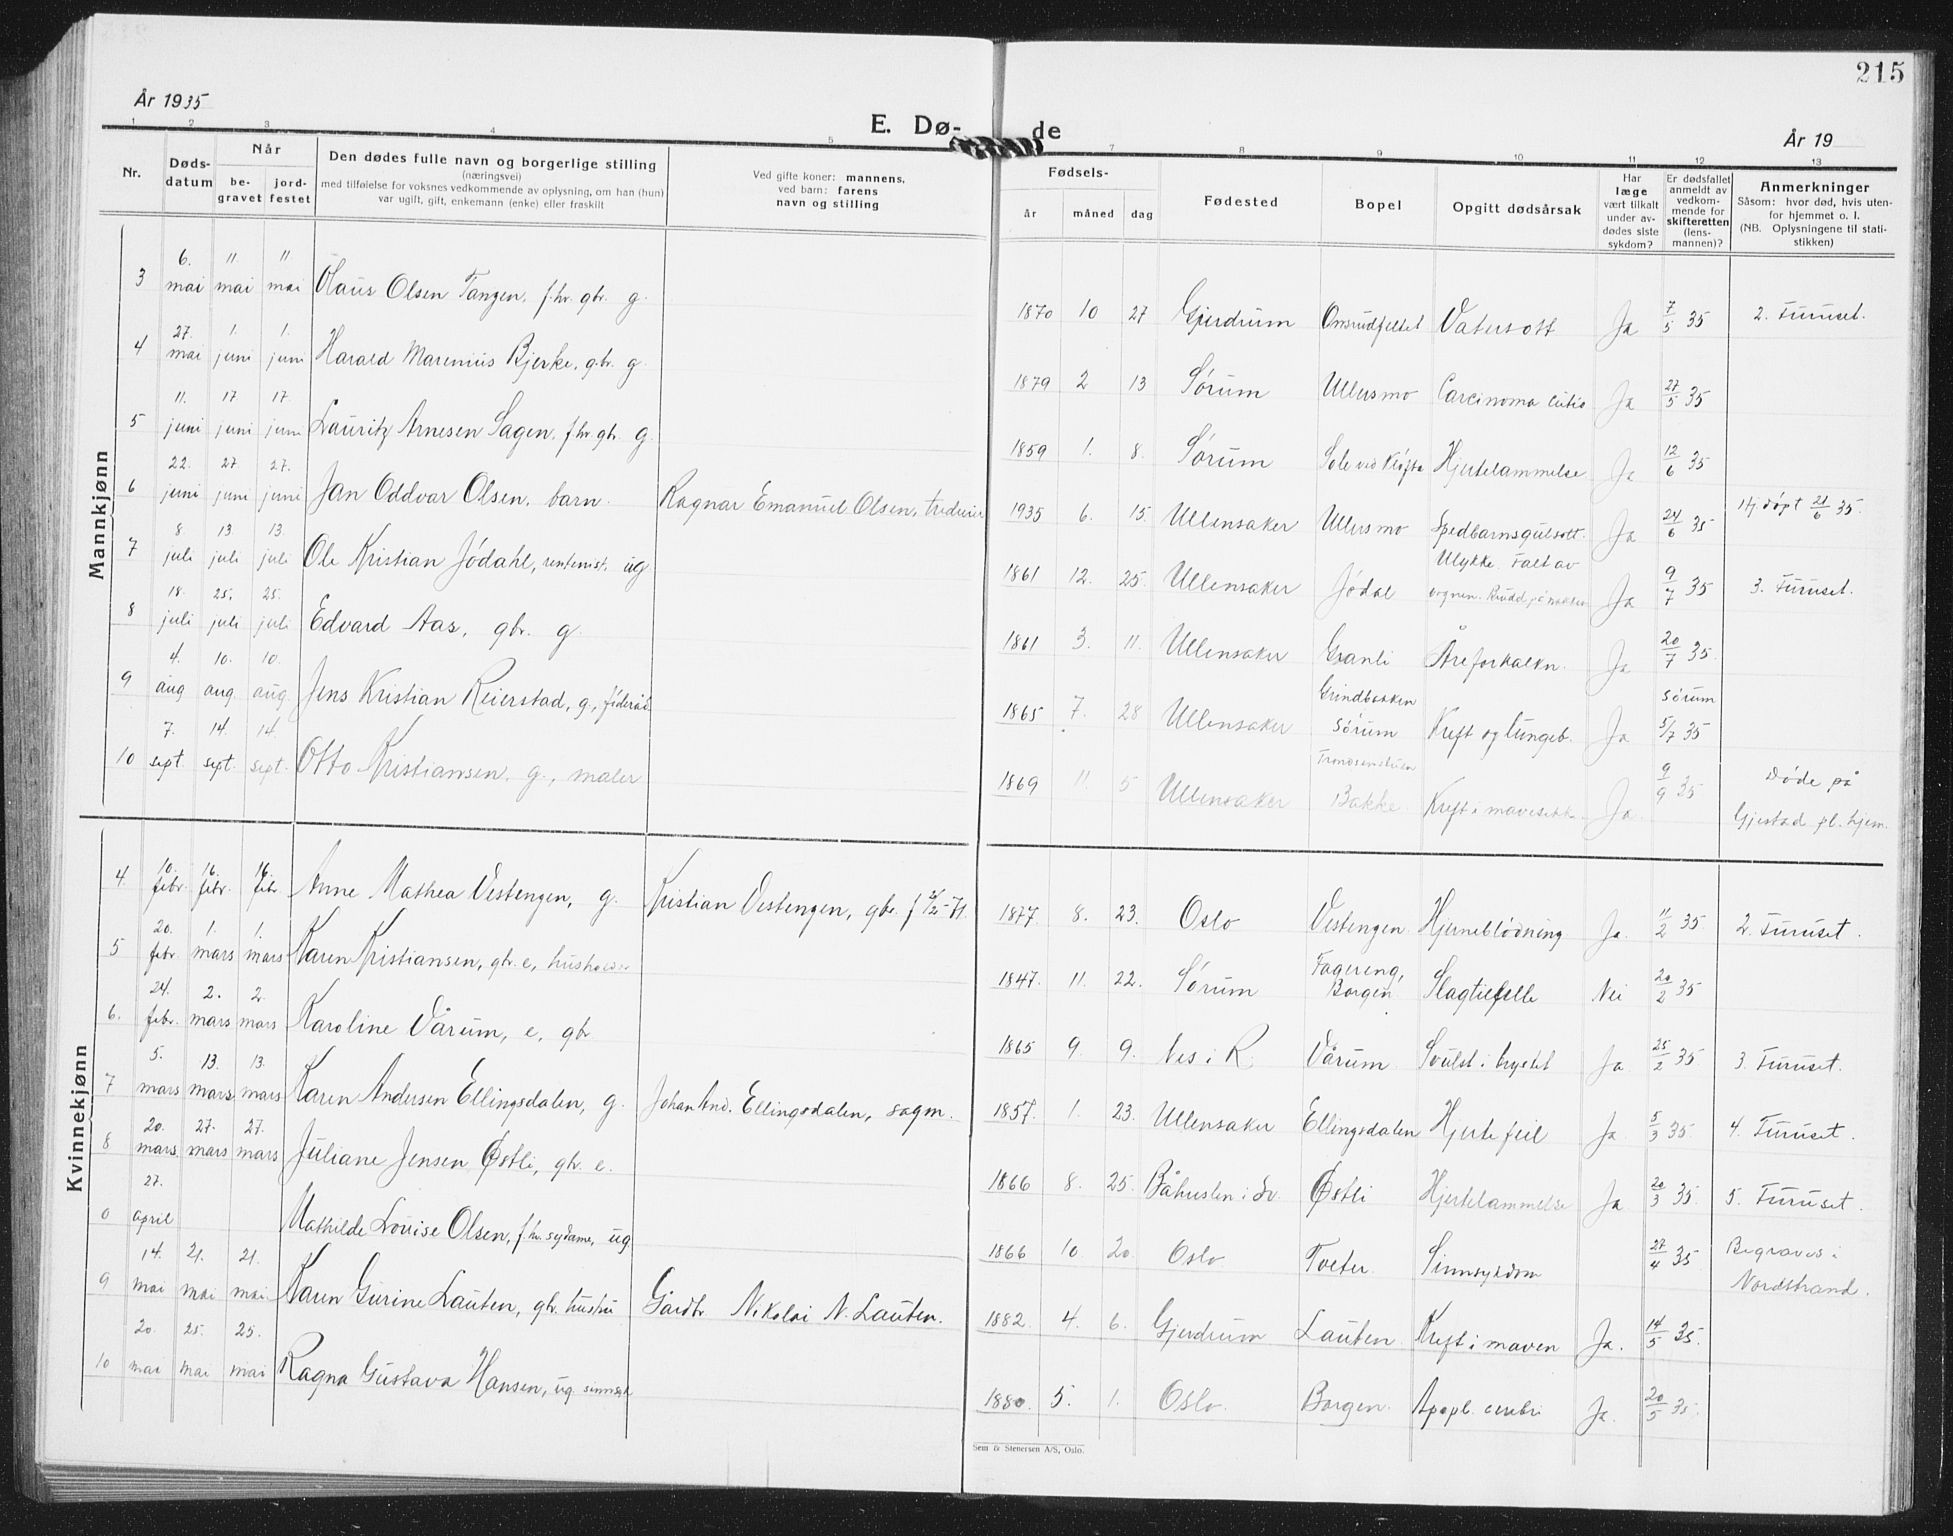 215
År 1935
E. Dø- de
År 19
1 2 3 4 5 7 8 9 10 11 12 13
Nr.
Døds-
datum
Når
be-
gravet
jord-
festet
Den dødes fulle navn og borgerlige stilling
(næringsvei)
med tilføielse for voksnes vedkommende av oplysning, om han (hun)
var ugift, gift, enkemann (enke) eller fraskilt
Ved gifte koner: mannens,
ved barn: farens
navn og stilling
Fødsels-
år måned dag
Fødested
Bopel
Opgitt dødsårsak
Har
læge
vært tilkalt
under av-
dødes siste
sykdom?
Er dødsfallet
anmeldt av
vedkom-
mende for
skifteretten
(lens-
mannen)?
Anmerkninger
Såsom: hvor død, hvis uten-
for hjemmet o. l.
(NB. Oplysningene til stati-
stikken)
Mannkjønn
3 6. mai 11. mai 11 mai Olaus Olsen Tangen, f.hv. gbr. g. 1870 10 27 Gjerdrum Onsrudfeltet Vatersott Ja 7/5 35 2. Furuset.
4 27. mai 1. juni 1. juni Harald Marenius Bjerke, gbr. g. 1879 2 13 Sørum Ullersmo Carcinoma cutis Ja 27/5 35
5 11. juni 17 juni 17. juni Lauritz Arnesen Sagen, f.hv. gbr. g. 1859 1. 8. Sørum Sole ved Kløfta Hjertelammelse Ja 12/6 35
6 22. juni 27 juni 27. juni Jan Oddvar Olsen, barn. Ragnar Emanuel Olsen, 1935 6. 15. Ullensaker Ullersmo Spedbarnsgulsott. Ja 24/6 35 Hj.døpt 21/6 35.
7 8. juli 13. juli 13. juli Ole Kristian Jødahl, rentenist, ug 1861 12. 25. Ullensaker Jødal Ulykke. Falt av
vognen. Brudd på nakken Ja 9/7 35 3. Furuset.
8 18. juli 25. juli 25. juli Edvard Aas, gbr. g. 1861 3. 11. Ullensaker Granli Åreforkalkn. Ja 20/7 35.
9 4. aug 10. aug. 10. aug. Jens Kristian Reierstad, g., føderåd 1865 7. 28 Ullensaker Grindbakken
Sørum Kreft og lungeb. Ja Sørum
5/7 35
10 7. sept. 14. sept. 14. sept. Otto Kristiansen, g., maler 1869 11. 5 Ullensaker
Bakke Kreft i mavesekk. Ja 9/9 35 Døde på
Gjestad pl. hjem.
Kvinnekjønn
4 10. febr. 16. febr. 16. febr Anne Mathea Vestengen, g. Kristian Vestengen, gbr. 1877. 8. 23. Oslo Vestengen Hjerneblødning Ja. 11/2 35 2. Furuset.
5 20. febr. 1. mars 1. mars Karen Kristiansen, gbr.e, 1847. 11. 22. Sørum Fagereng,
Borgen Slagtilfelle Nei 20/2 35
6. 24. febr. 2. mars 2. mars Karoline Vårum, e, gbr 1865 9. 9. Nes i R. Vårum Svulst i brystet Ja 25/2 35. 3. Furuset.
7 5. mars 13. mars 13. mars Karen Andersen Ellingsdalen, g. Johan And. Ellingsdalen, sagm. 1857. 1. 23. Ullensaker Ellingsdalen Hjertefeil Ja. 5/3 35. 4. Furuset.
8 20. mars. 27. mars 27. mars Juliane Jensen Østli, gbr. e. 1866 8. 25. Båhuslen i Sv. Østli Hjertelammelse Ja 20/3 35. 5. Furuset.
0 27. april Mathilde Louise Olsen, f.hv. sydame, ug 1866 10. 20. Oslo Toeter. Sinnsykdom 27/4 35 Begraves i
Nordstrand.
9 14. mai 21. mai 21. mai Karen Gurine Lauten, gbr. hustru Gårdbr. Nikolai N. Lauten. 1882. 4. 6. Gjerdrum Lauten Kreft i maven Ja. 14/5 35.
10 20. mai 25. mai 25. mai Ragna Gustava Hansen, ug. sinnsyk 1880. 5. 1. Oslo. Borgen. Apopl. cerebri Ja. 20/5 35.
Sem & Stenersen A/S, Oslo.